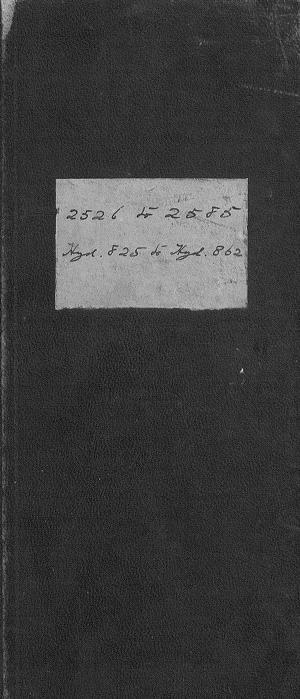 2526 to 2585
Hyd. 825 to Hyd. 862